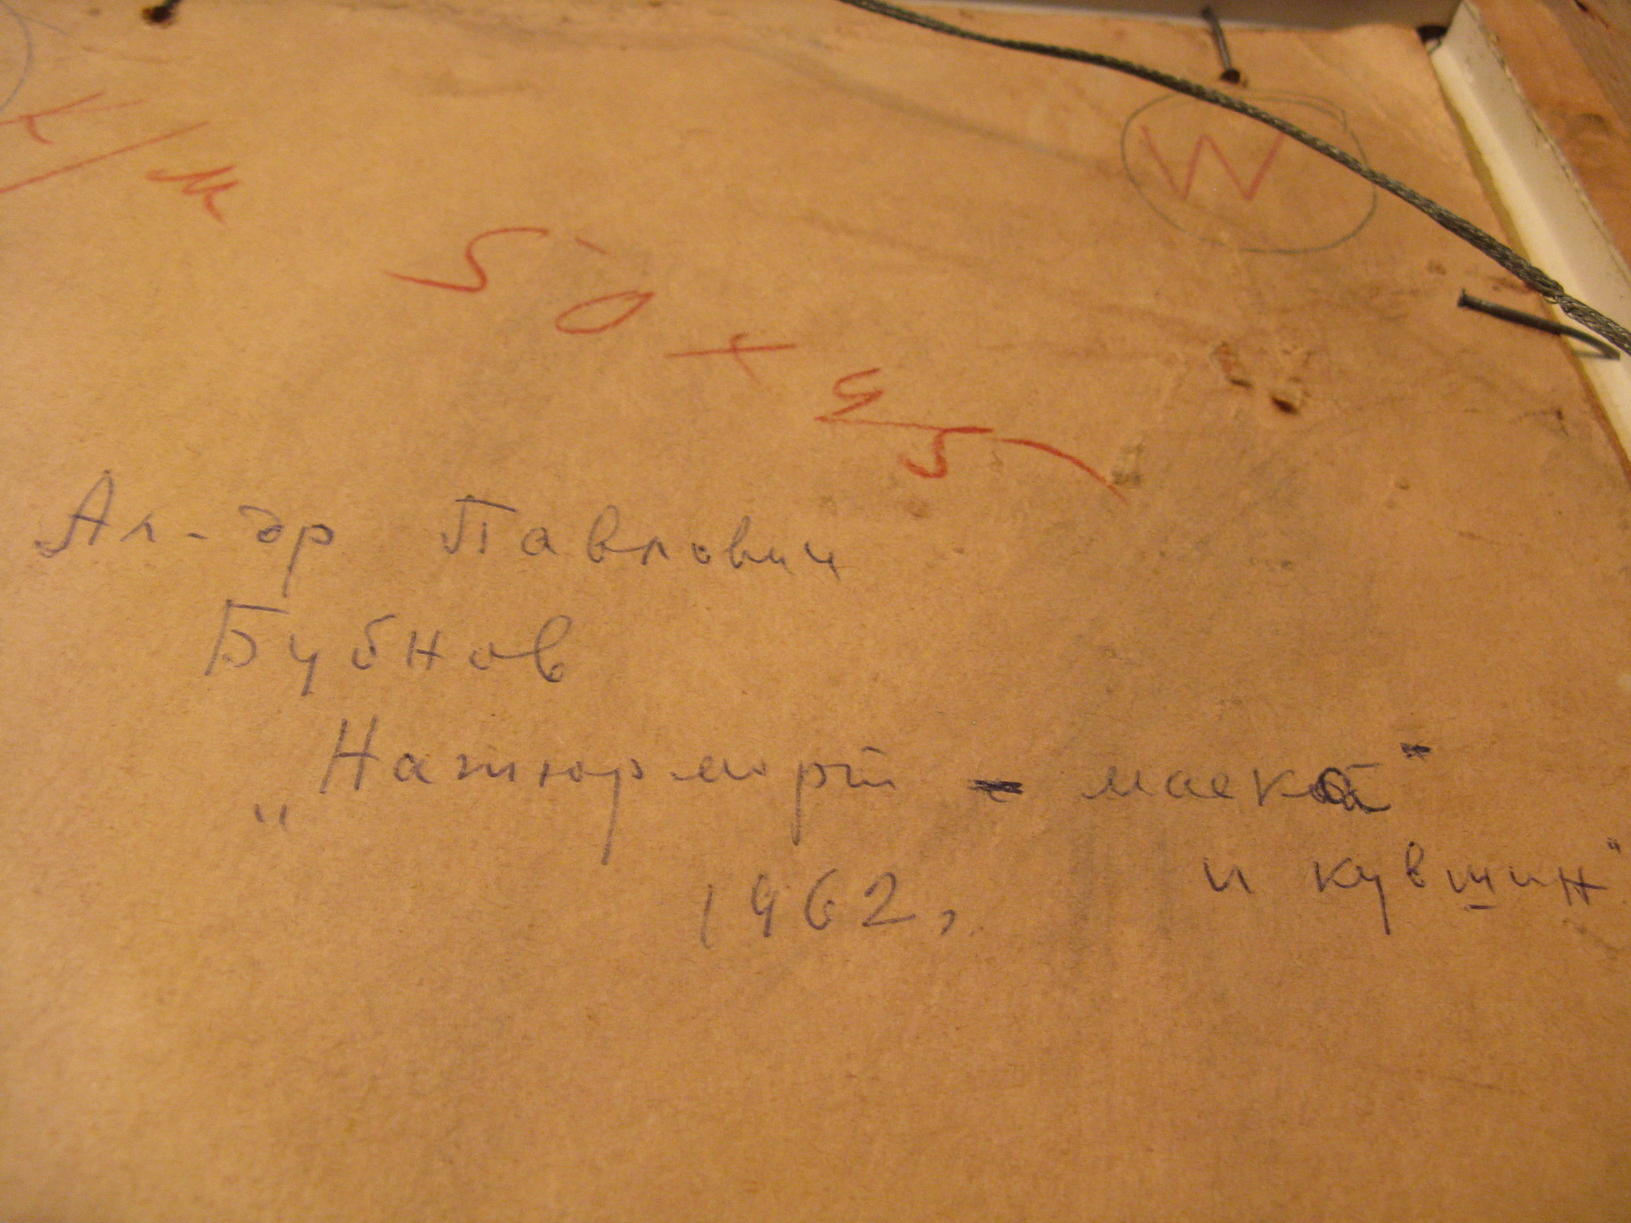 к/м
W
50 x 45
Ал-др Павлович
Бубнов
„Натюрморт - маска"
и кувшин"
1962,